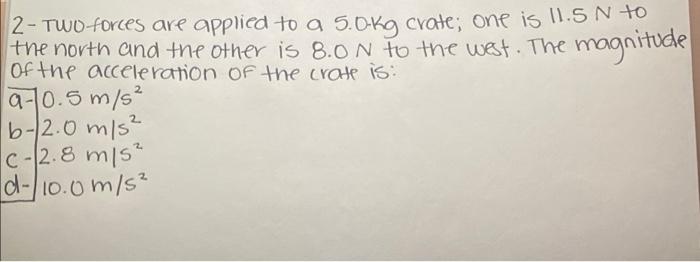 2- Two forces are applied to a 5.0-Kg crate; one is 11.5 N to
the north and the other is 8.0 N to the west. The magnitude
Of the acceleration OF the crate is:
a- 0.5 m/s²
b- 2.0 m/s²
c- 2.8 m/s²
d- 10.0 m/s²